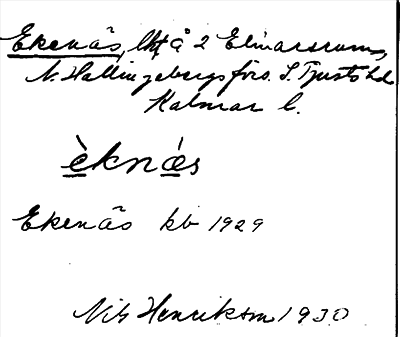 Ekenäs, lht å 2 Elmarsrum,
N. Hallingebergs förs. S. Tjusts hd
Kalmar l.
èknás
Ekenäs kb 1929
Nils Henrikson 1930